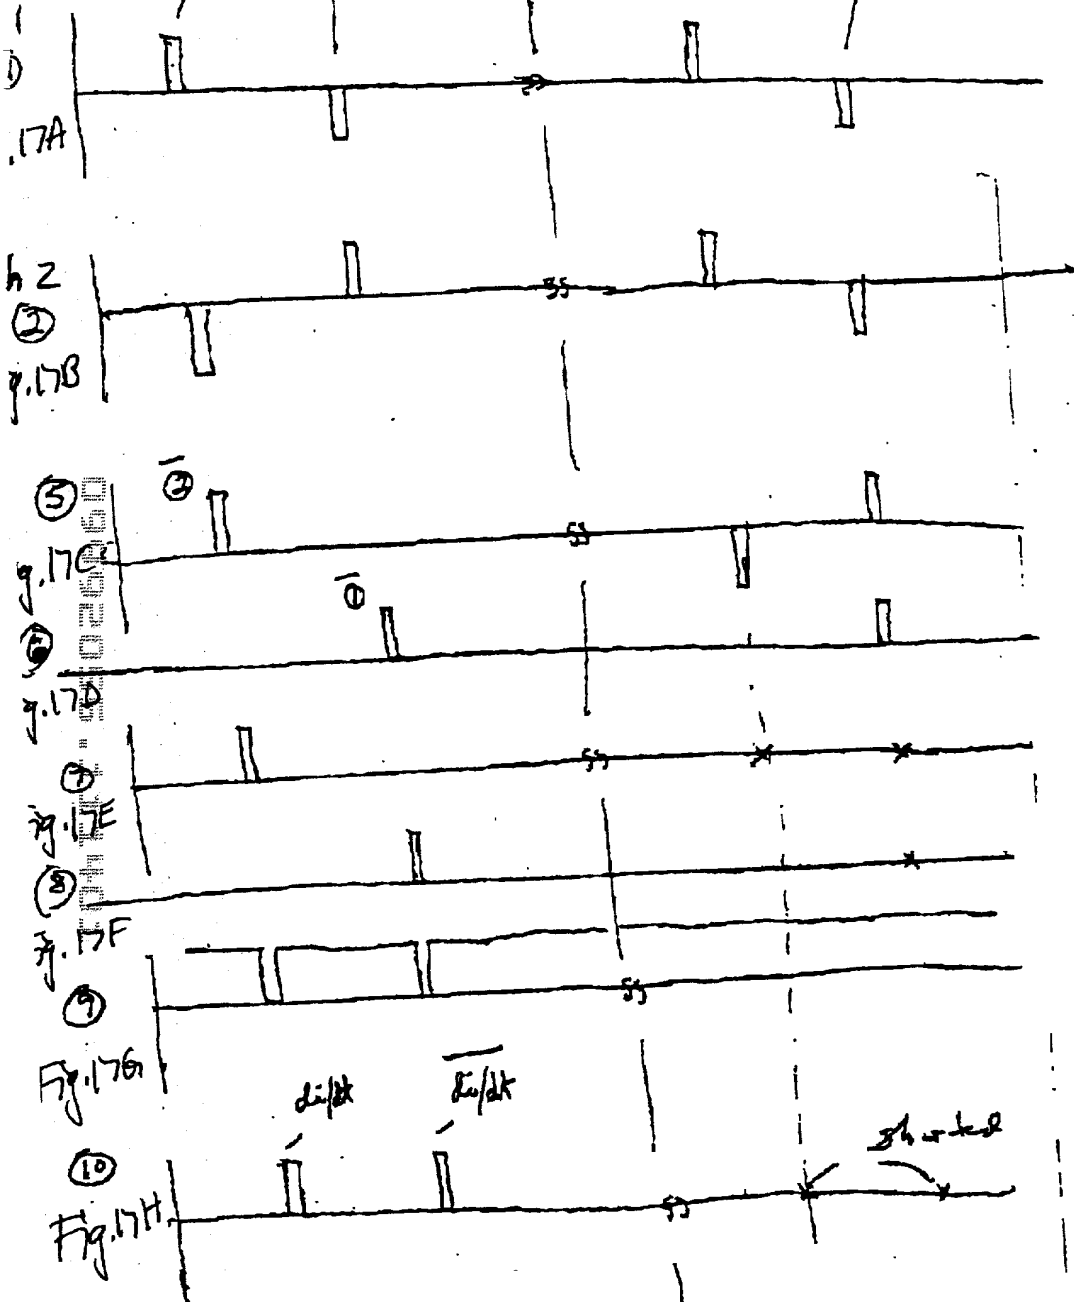 ①
.17A
h 2
②
g.17B
⑤
②
g.17C
①
⑥
g.17D
⑦
ig.17E
⑧
ig.17F
⑨
Fig.17G
di/dt
di/dt
⑩
shorted
Fig.17H